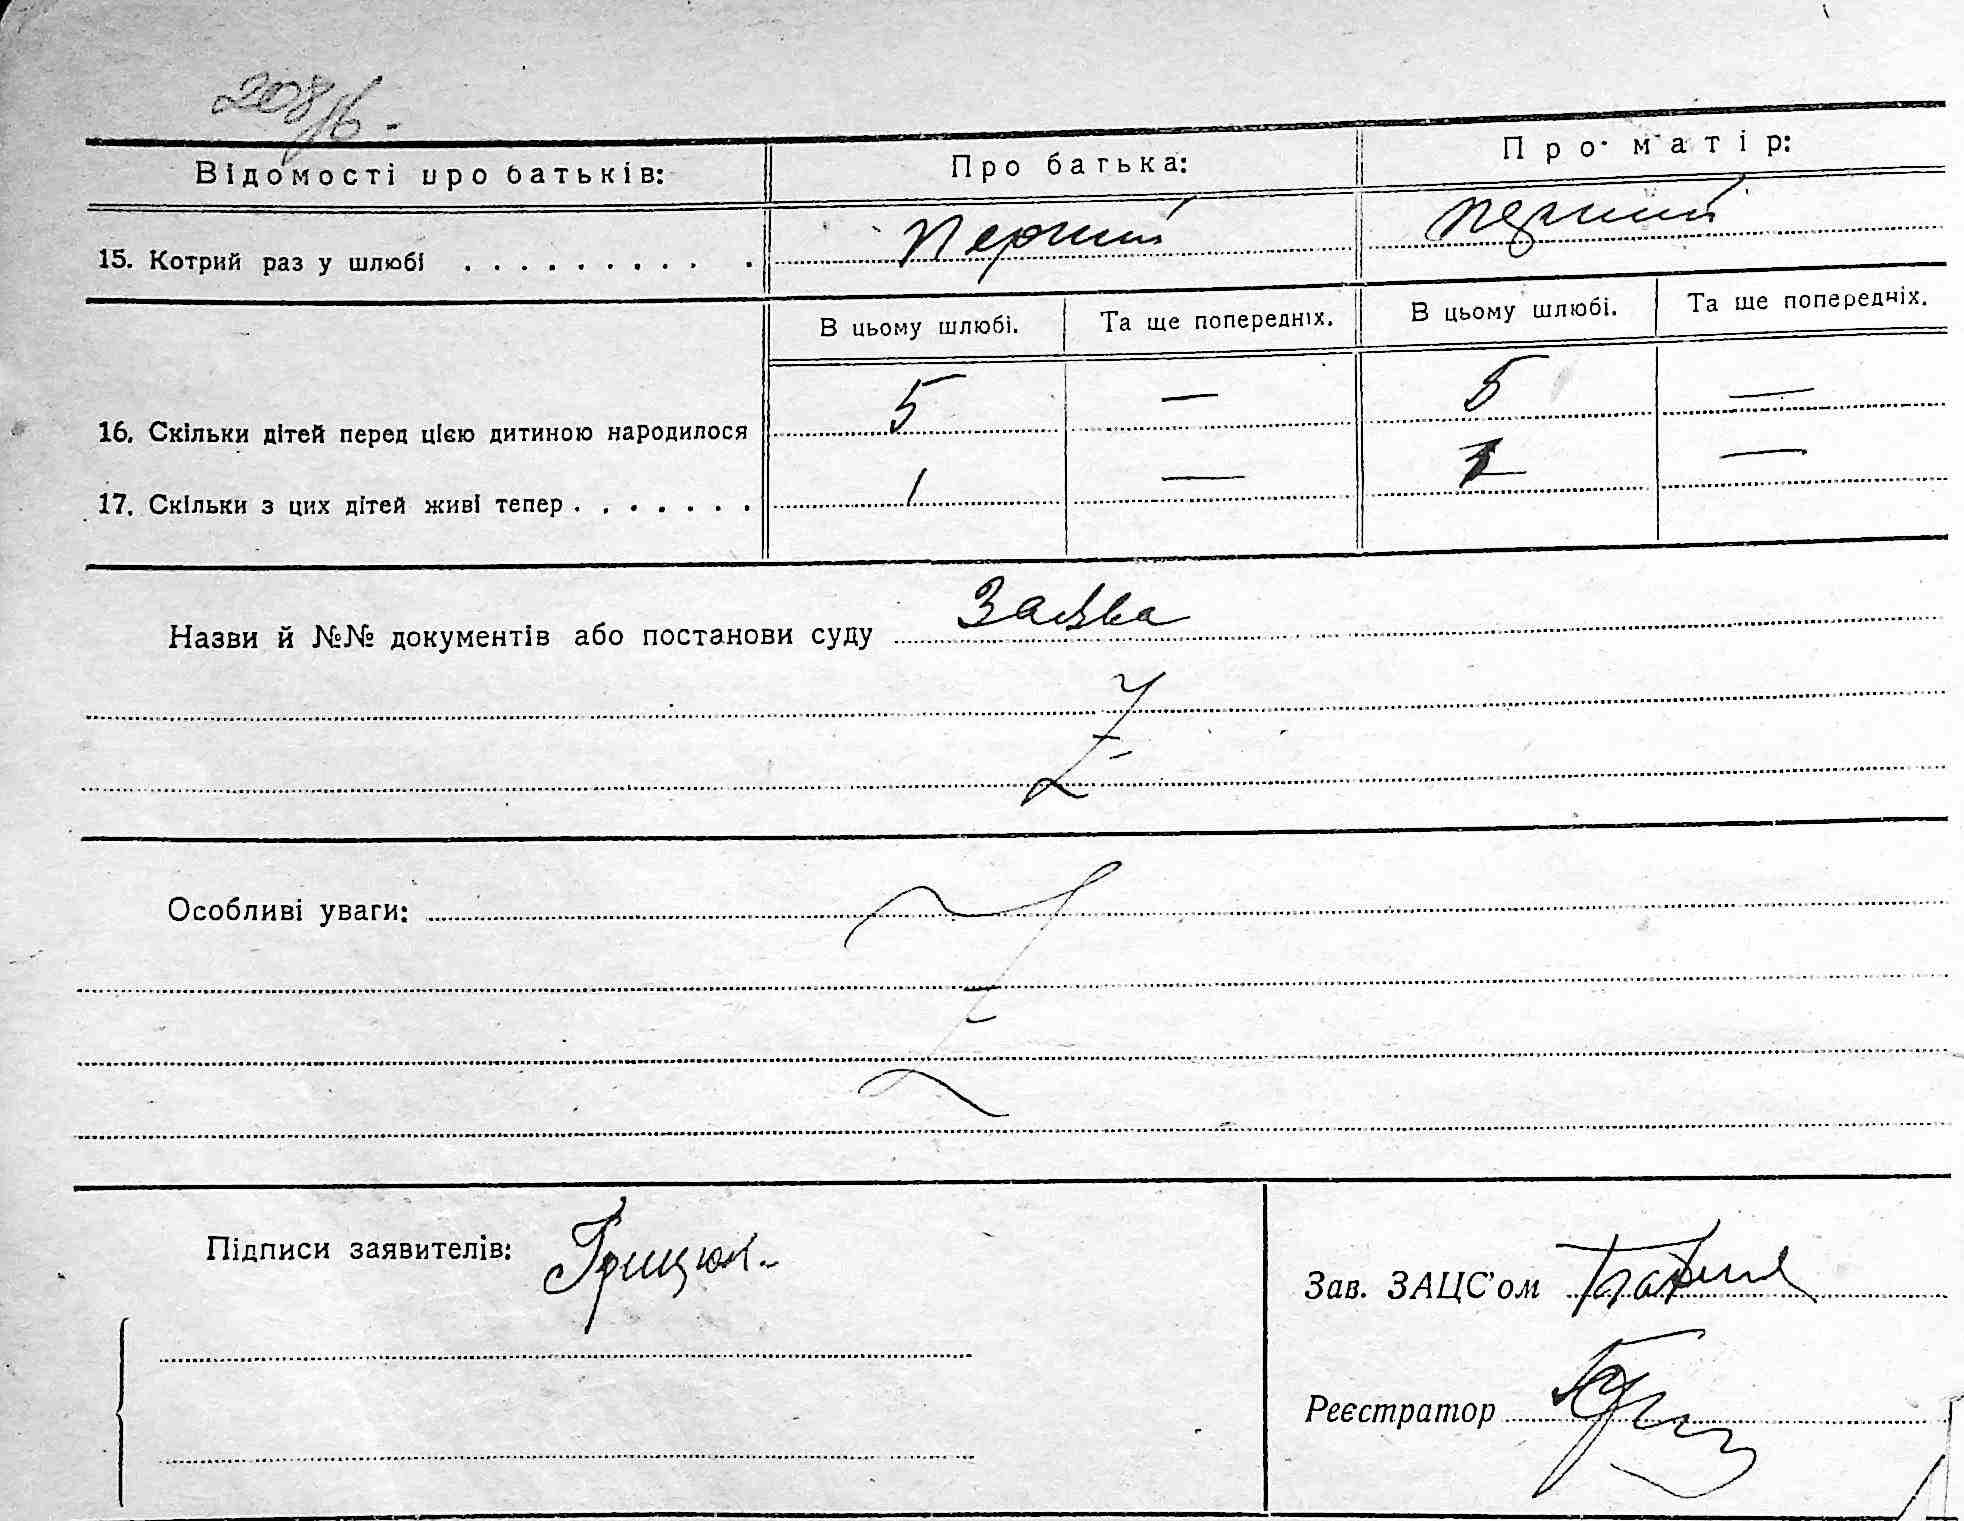 208/6.
Відомості про батьків: Про батька: Про матір:
15. Котрий раз у шлюбі . . . . . . . . . . Перший Перший
В цьому шлюбі. Та ще попередніх. В цьому шлюбі. Та ще попередніх.
16. Скільки дітей перед цією дитиною народилося 5 — 5 —
17. Скільки з цих дітей живі тепер . . . . . . . 1 — 1 —
Назви й №№ документів або постанови суду Заява
Особливі уваги:
Підписи заявителів: Грицюк.
Зав. ЗАЦС'ом
Реєстратор